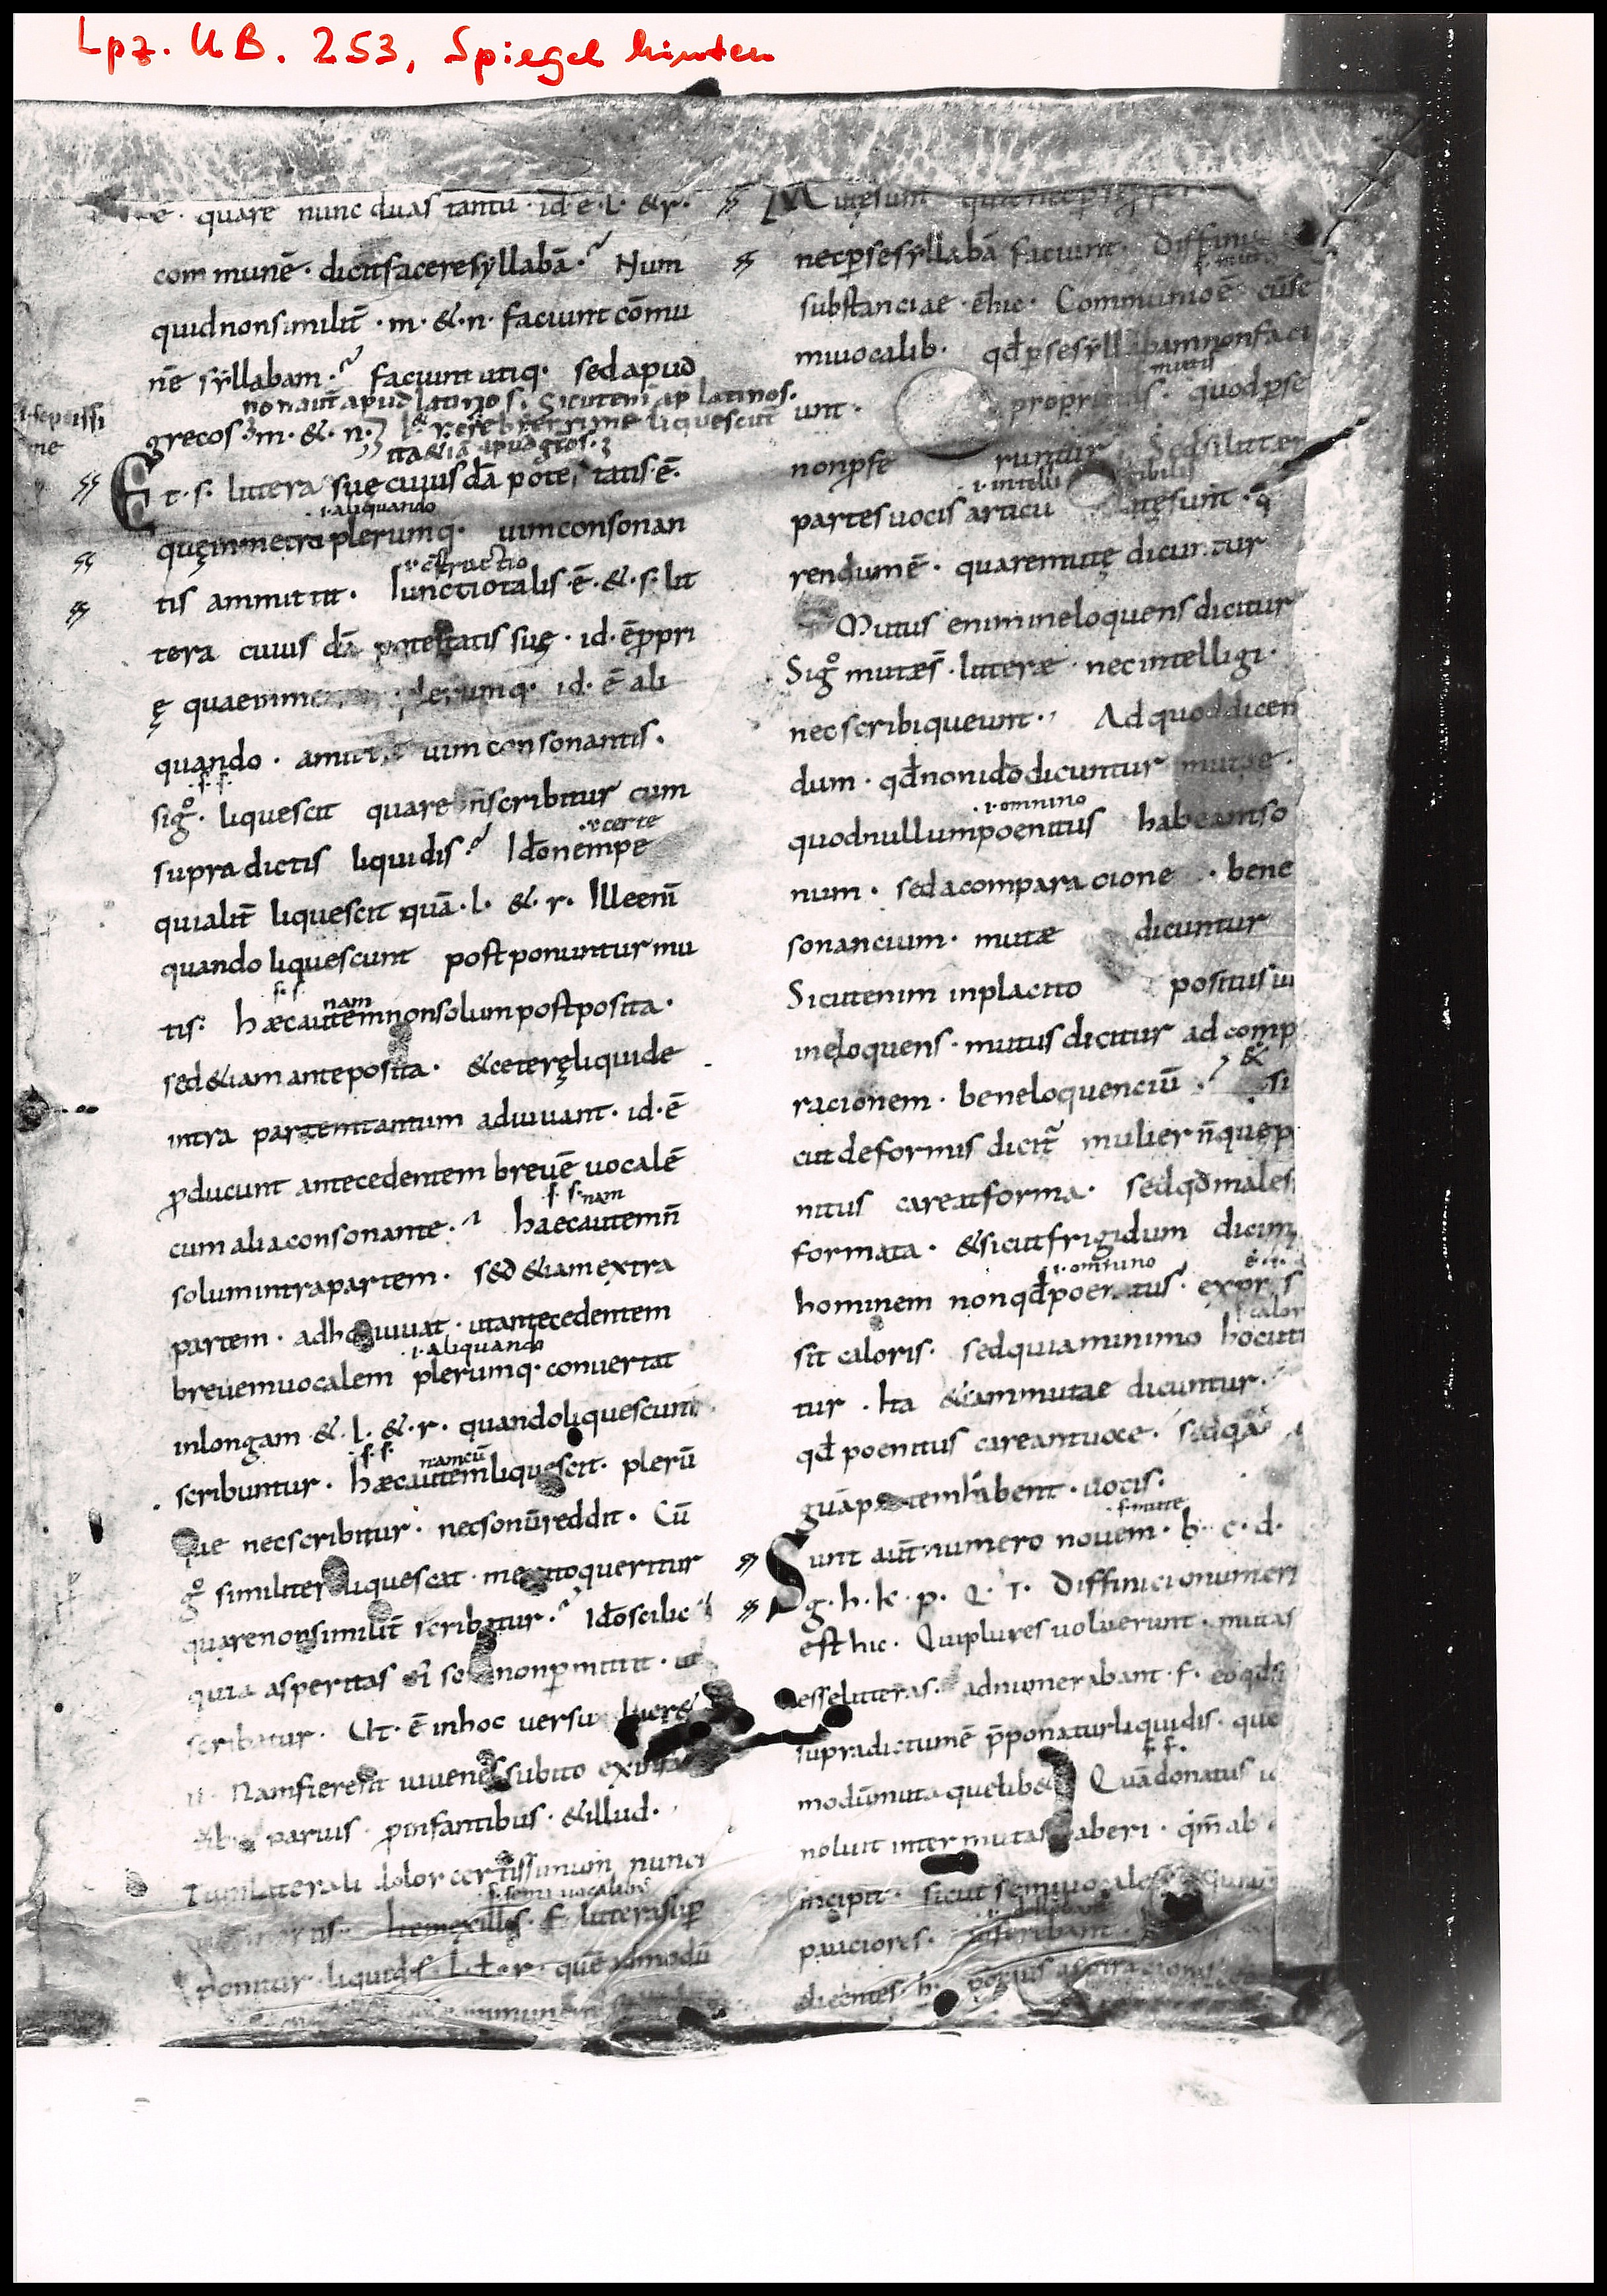 Lpz. UB. 253, Spiegel hinten
ē · quare nunc duas tantu · id·e·l· &·r·
communē · dicit facere syllabā · Num
quid non similit̄ · m · & · n · faciunt cōmu
nē syllabam · faciunt utiq· sed apud
non aut̄ apud latinos · Sicut enī ap̄ latinos ·
grecos · m · & · n · l & r creberrime liquescunt
ita &iā apud grecos ·
Et · s · littera suę cuiusdā potestatis · ē ·
·i· aliquando
quę in metro plerumq· uim consonan
·i· cōstructio
tis ammittit · Iunctio talis · ē · & · s · lit
tera cuiusdā potestatis suę · id · ē p̄pri
ę quae in me plerumq· id · ē ali
quando · amittit uim consonantis ·
·s· s·
sigº · liquescit quare n̄ scribitur cum
·i· certe
supradictis liquidis · Idō nempe
quia lit̄ liquescit quā · l · & · r · Ille enī
quando liquescunt postponuntur mu
s· s· nam
tis : hæc autem non solum postposita ·
sed &iam anteposita · & ceterę liquide
intra partem tantum adiuuant · id · ē
p̄ducunt antecedentem breuē uocalē
s· s· nam
cum alia consonante · haec autem n̄
solum intra partem · sed &iam extra
partem · adhc iuuat · ut antecedentem
·i· aliquando
breuem uocalem plerumq· conuertat
in longam · & · l · & · r · quando liquescunt
·s· s· nam cū
scribuntur · hæc autem liquescit · plerū
que nec scribitur · nec sonū reddit · Cū
gº similiter liquescat · merito queritur
quare non similit̄ scribatur · Idō scilic&
quia asperitas ei soni non p̄mittit · ut
scribatur · Ut · ē in hoc uersu
Nam fierent iuuenes subito ex infa
paruis · p̄ infantibus · & illud ·
Tum laterali dolor certissimum nunci
s· semi uocalib·
mortis · Item ex illis · f · littera sup̄
ponitur liquidis · l · & · r · quē ammodū
Mutę sunt quae nec p̄
nec p̄ se syllabā faciunt · Diffini
substanciae · ē hic · Communio ē cū se
miuocalib· qd̄ p̄ se syllabam non faci
mutis
unt · proprietas · quod p̄ se
non p̄fe runtur · Sed si litter
·i· intelli gibilis
partes uocis articu latę sunt · q
rendum ē · quare mutę dicuntur
Mutus enim ineloquens dicitur
Sigº mutæ s̄ · litteræ · nec intelligi ·
nec scribi queunt · Ad quod dicen
dum · qd̄ non idō dicuntur mutae ·
·i· omnino
quod nullum poenitus habeant so
num · sed a comparacione · bene
sonancium · mutæ dicuntur
Sicut enim in placito positus ui
ineloquens · mutus dicitur ad comp
&
racionem · bene loquenciū · si
cut deformis dicit̄ mulier n̄ que p
nitus careat forma · sed qd̄ male s
formata · & sicut frigidum dicim
·i· omnino
hominem non qd̄ poenitus · expers
s· calor
sit caloris · sed quia minimo hoc uti
tur · Ita &iam mutae dicuntur ·
qd̄ poenitus careant uoce · sed qā
guā partem habent · uocis ·
·s· mute
Sunt aut̄ numero nouem · b · c · d ·
g · h · k · p · Q · T · Diffinicio numeri
est hic · Qui plures uoluerunt · mutas
esse litteras · adnumerabant · f · eo qd̄ si
supradictum ē p̄ponatur liquidis · que
s· s·
modū muta quelibet Quā donatus i
noluit inter mutas haberi · qm̄ ab
incipit · sicut semiuocales
pauciores ·
dicentes · h · potius aspiracionis